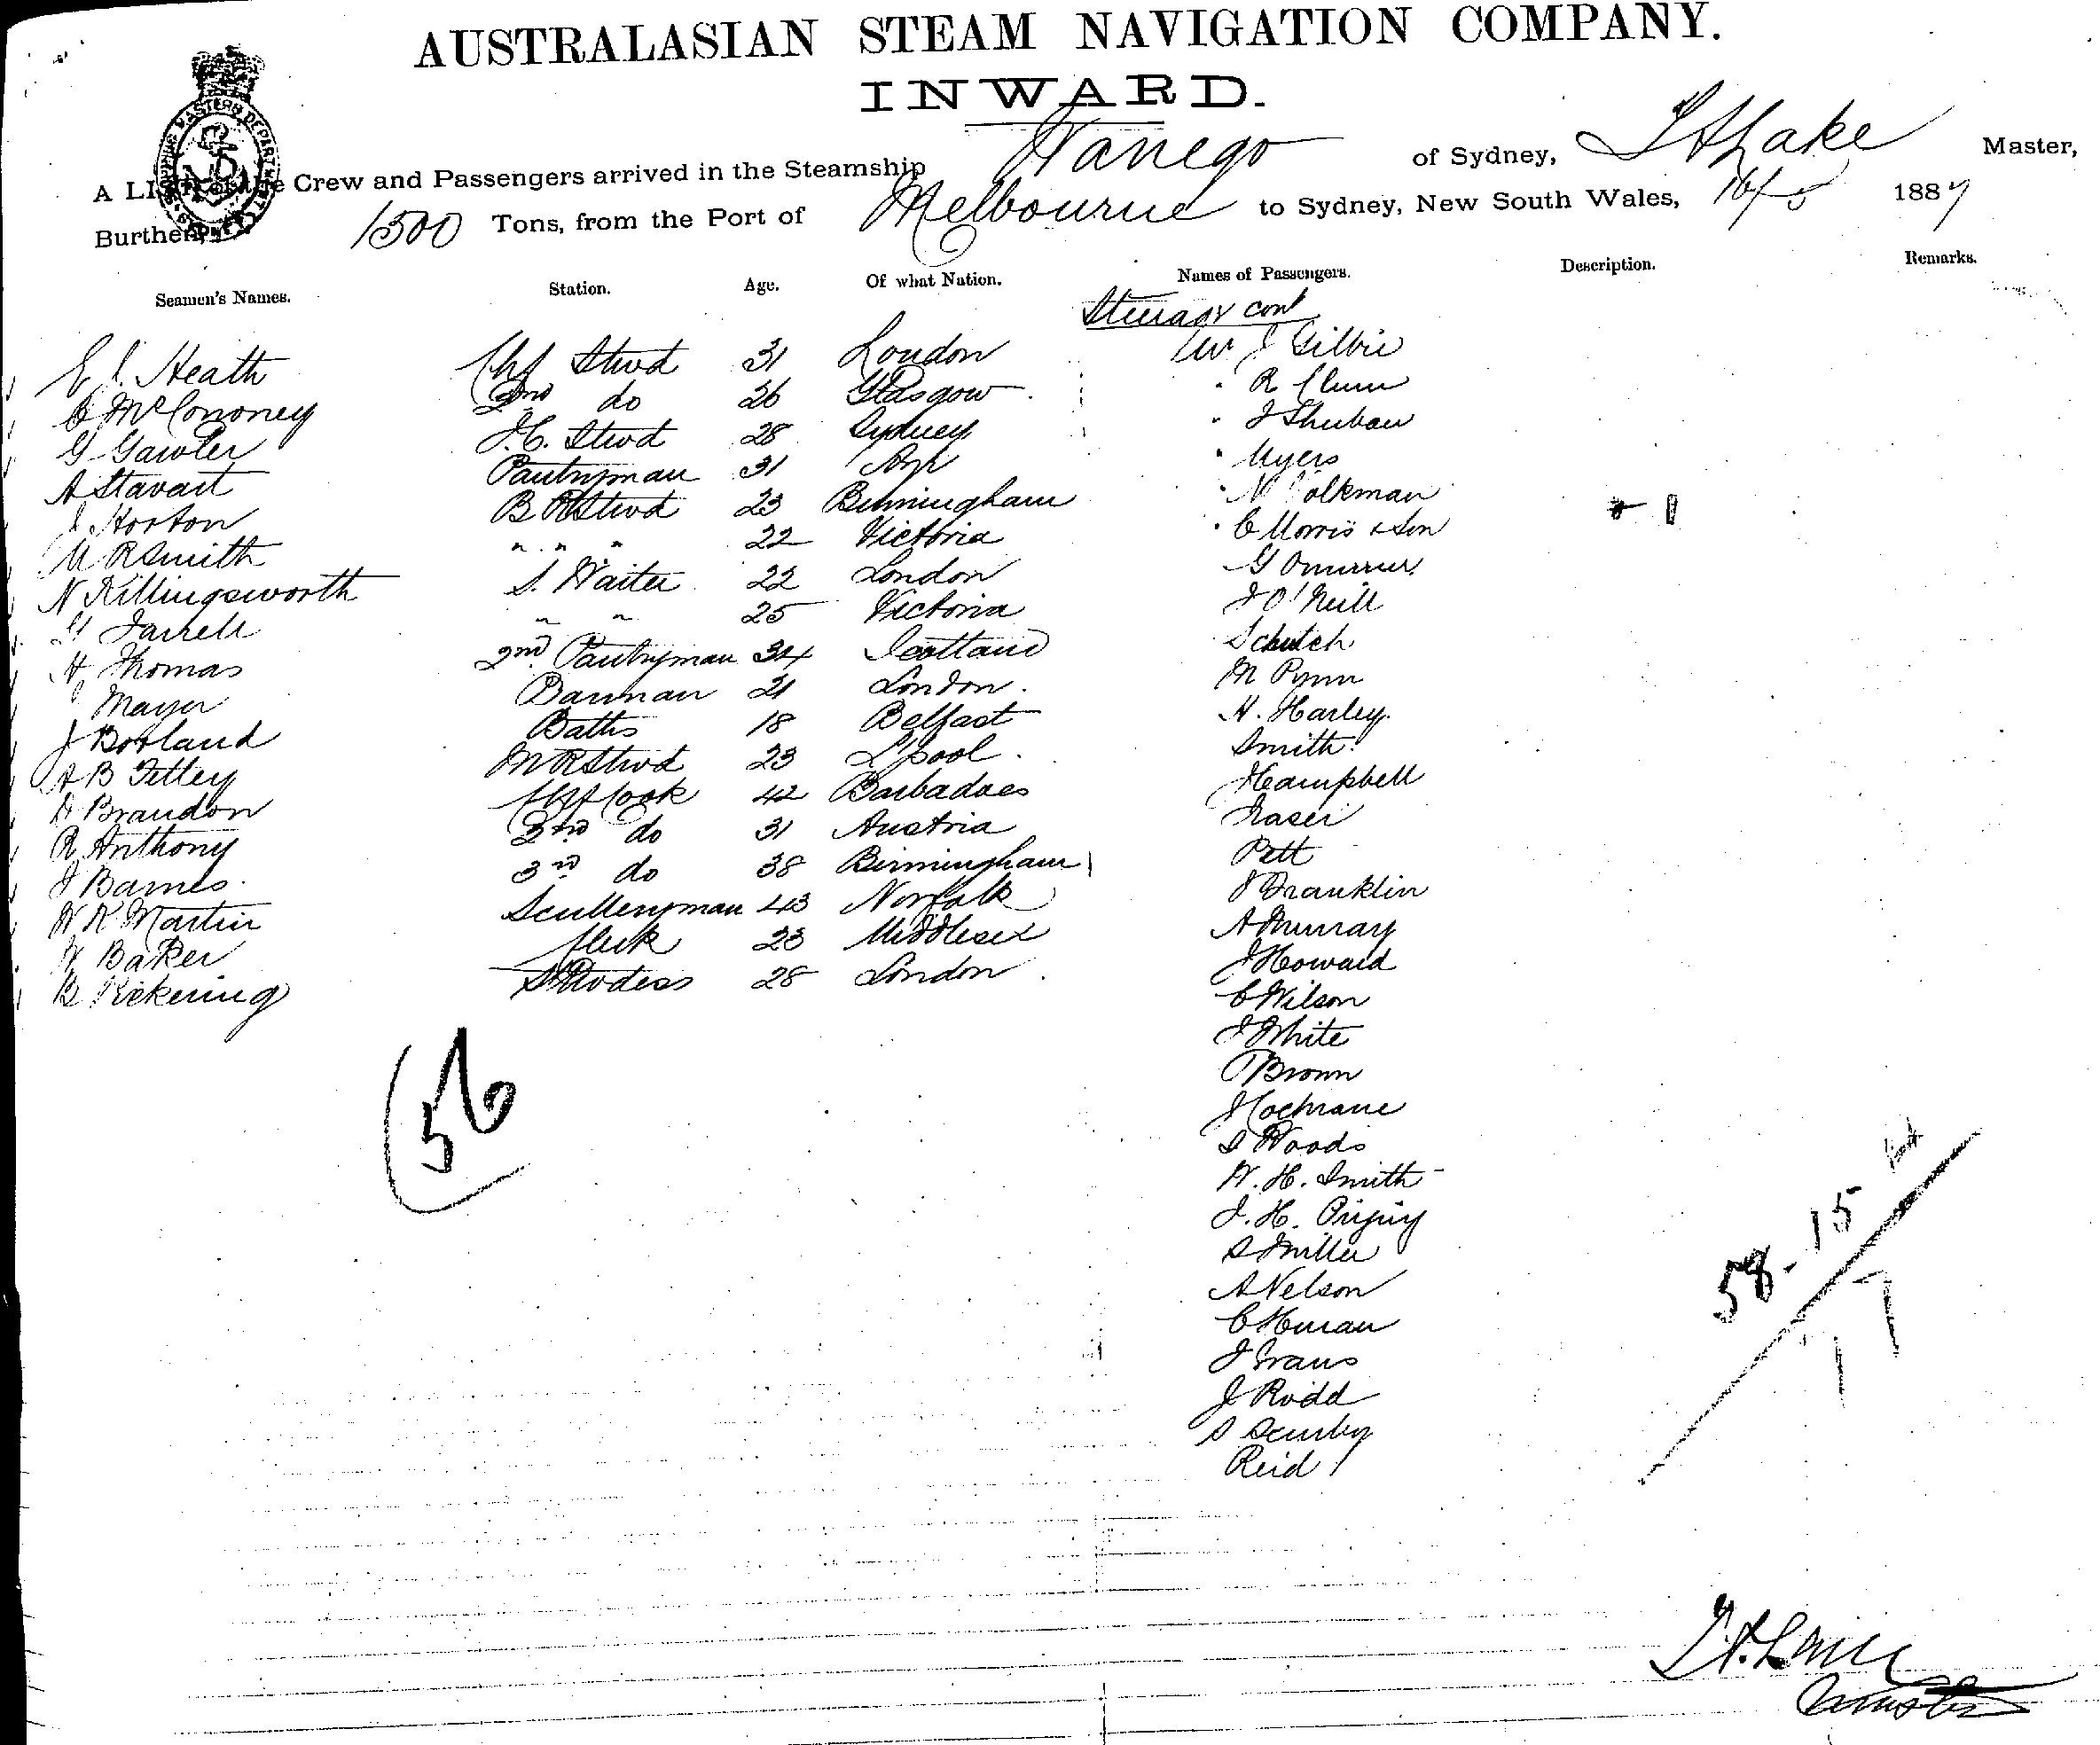 AUSTRALASIAN STEAM NAVIGATION COMPANY.
INWARD.
A LIST of the Crew and Passengers arrived in the Steamship of Sydney, Lake Master,
Burthen, 1500 Tons, from the Port of Melbourne to Sydney, New South Wales, 16/5 1887
Seamen's Names. Station. Age. Of what Nation. Names of Passengers. Description. Remarks.
Steerage cont
Heath Stwd 31 London Mr J Gilbie
2nd do 26 Glasgow R
G Gawler Stwd 28 Sydney J
A Pantryman 31 Ayr Myers
J Horton B R Stwd 23 Birmingham
M R Smith " " " 22 Victoria C Morris & Son
N Killingsworth S. Waiter 22 London G
Farrell " " 25 Victoria J O'Neill
H Thomas 2nd Pantryman 34 Scotland Schutch
Mayer Barman 21 London. M
J Borland Baths 18 Belfast H. Harley.
A B Tetley M R Stwd 23 L'pool Smith.
Brandon Chf Cook 42 Barbadoes J Campbell
R Anthony 2nd do 31 Austria Fraser
J Barnes 3rd do 38 Birmingham Pett
W R Martin Sculleryman 43 Norfolk J Franklin
Baker Clerk 23 Middlesex A Murray
B Pickering Stwdess 28 London J Howard
C Wilson
J White
T Brown
J Cochrane
J Woods
W. H. Smith
J. H.
S Miller
A Nelson
C
J Evans
J Rodd
S
Reid
56
58 - 15
17
Master